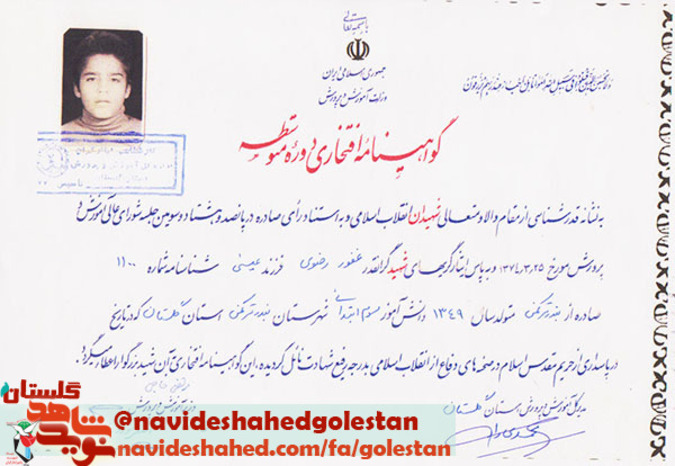 باسمه تعالی
جمهوری اسلامی ایران
وزارت آموزش و پرورش
ولا تحسبن الذین قتلوا فی سبیل الله امواتا بل احیاء عند ربهم یرزقون
گواهینامه افتخاری دوره متوسطه
به نشانه قدرشناسی از مقام والا و متعالی شهیدان انقلاب اسلامی و به استناد رأی صادره در پانصد و هشتاد و سومین جلسه شورای عالی آموزش و
پرورش مورخ ۱۳۷۴/۳/۲۵ و به پاس ایثارگریهای شهید گرانقدر غفور رضوی فرزند عیسی شناسنامه شماره ۱۱۰۰
صادره از بندر ترکمن متولد سال ۱۳۴۹ دانش آموز سوم ابتدائی شهرستان بندر ترکمن استان گلستان که در تاریخ
در پاسداری از حریم مقدس اسلام در صحنه های دفاع از انقلاب اسلامی بدرجه رفیع شهادت نائل گردیده، این گواهینامه افتخاری به آن شهید بزرگوار اعطا میگردد.
مدیر کل آموزش و پرورش استان گلستان
وزیر آموزش و پرورش
گلستان
نوید شاهد
@navideshahedgolestan
navideshahed.com/fa/golestan